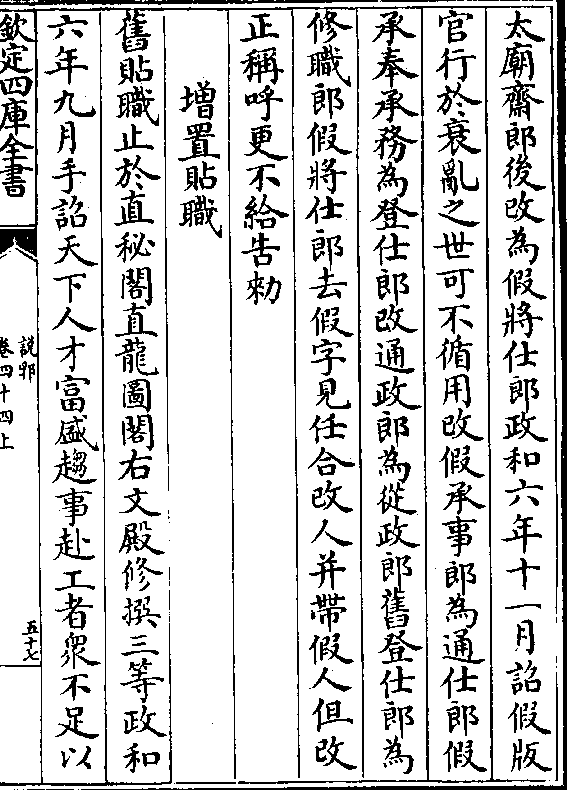 太廟齋郎後改為假將仕郎政和六年十一月詔假版
官行於衰亂之世可不循用改假承事郎為通仕郎假
承奉承務為登仕郎改通政郎為從政郎舊登仕郎為
修職郎假將仕郎去假字見任合改人并帶假人但改
正稱呼更不給告勑
增置貼職
舊貼職止於直秘閣直龍圖閣右文殿修撰三等政和
六年九月手詔天下人才富盛趨事赴工者衆不足以
欽定四庫全書
說郛
卷四十四上
五十七